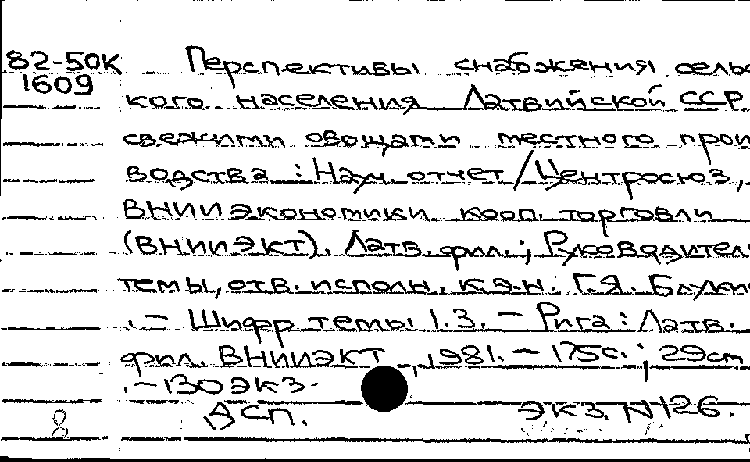 82-50К Перспективы снабжения сель
1609 кого населения Латвийской ССР
свежими овощами местного прои
водства : Науч. отчет / Центросоюз,
ВНИИ экономики кооп. торговли
(ВНИИЭКТ). Латв. фил. ; Руководител
темы, отв. исполн. к.э.н. Г.Я.
. - Шифр темы 1.3. - Рига : Латв.
фил. ВНИИЭКТ, 1981. - 175с. ; 29см
. - 130 экз.
8 ДСП. экз. N 126.